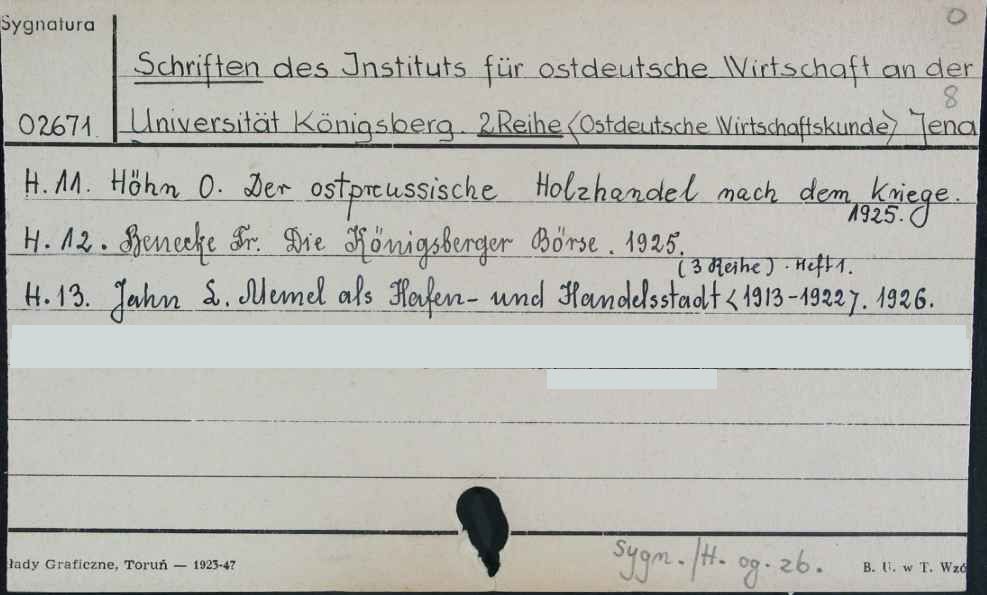 Sygnatura
0
Schriften des Instituts für ostdeutsche Wirtschaft an der
8
02671. Universität Königsberg. 2Reihe <Ostdeutsche Wirtschaftskunde> Jena
H. 11. Höhn O. Der ostpreussische Holzhandel nach dem Kriege.
1925.
H. 12. Benecke Fr. Die Königsberger Börse. 1925.
(3 Reihe). Heft 1.
H. 13. Jahn L. Memel als Hafen- und Handelsstadt <1913-1922>. 1926.
sygn. /H. og. zb.
łady Graficzne, Toruń — 1923-47
B. U. w T. Wzó